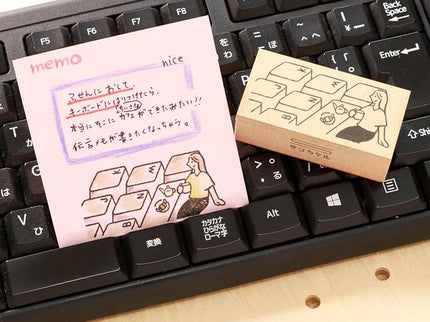 memo
nice
ふせんに おして、
キーボードにはりつけてたら、
本当にそこに 小さな カフェができたみたい!!
伝言メモが書きたくなっちゃう。
サンケイル
F5
F6
F7
F8
Back Space
Enter
Shift
Alt
変換
カタカナ
ひらがな
ローマ字
V ひ